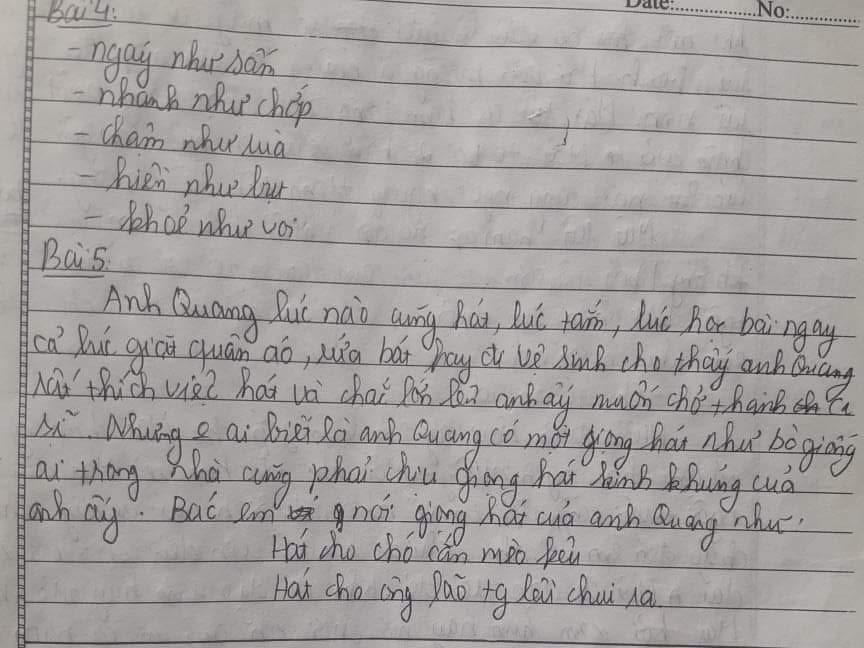 Date:..............No:..............
Bài 4:
- ngáy như sấm
- nhanh như chớp
- chậm như rùa
- hiền như bụt
- khoẻ như voi
Bài 5:
Anh Quang lúc nào cũng hát, lúc tắm, lúc học bài ngay
cả lúc giặt quần áo, rửa bát hay đi vệ sinh cho thấy anh Quang
rất thích việc hát và chắc lớn lên anh ấy muốn trở thành ca
sĩ. Nhưng ai biết là anh Quang có một giọng hát như bò giống
ai trong nhà cũng phải chịu giọng hát kinh khủng của
anh ấy. Bác em nói giọng hát của anh Quang như:
Hát cho chó cắn mèo kêu
Hát cho ông lão tg lều chui ra